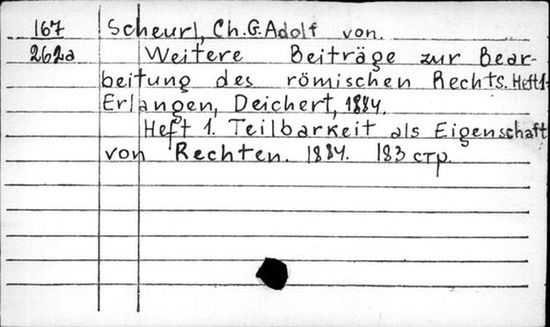 167 Scheurl, Ch.G.Adolf von.
262a Weitere Beiträge zur Bear-
beitung des römischen Rechts. Heft 1-
Erlangen, Deichert, 1884.
Heft 1. Teilbarkeit als Eigenschaft
von Rechten. 1884. 183 стр.